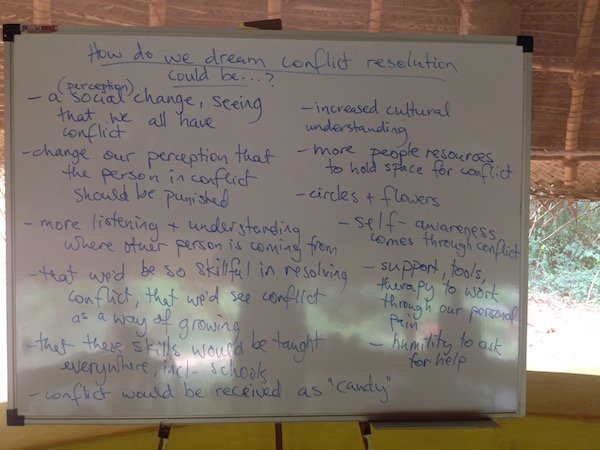 How do we dream conflict resolution
could be...?
(perception)
- a social change, seeing
that we all have
conflict
- change our perception that
the person in conflict
should be punished
- more listening + understanding
where other person is coming from
- that we'd be so skillful in resolving
conflict, that we'd see conflict
as a way of growing
- that these skills would be taught
everywhere, incl. schools
- conflict would be received as "candy"
- increased cultural
understanding
- more people resources
to hold space for conflict
- circles + flowers
- self-awareness
comes through conflict
- support, tools,
therapy to work
through our personal
pain
- humility to ask
for help